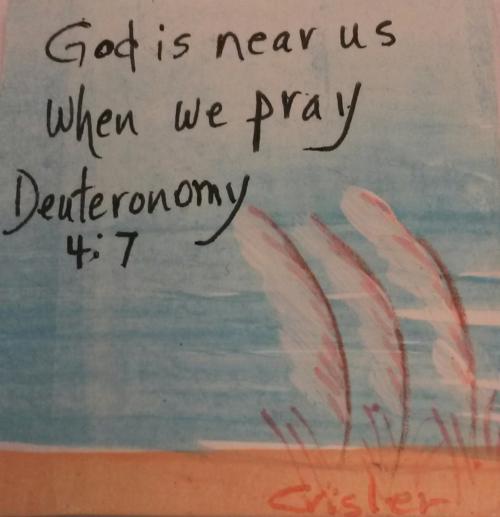 God is near us
when we pray
Deuteronomy
4:7
Crisler